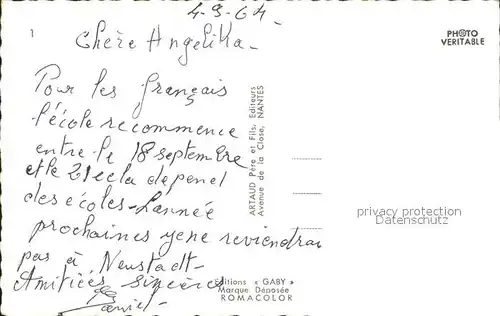 4-9-64
1
Chère Angelika-
Pour les français
l'école recommence
entre le 18 septembre
et le 21 ecla depend
des écoles-Lannée
prochaines yene reviendrai
pas à Neustadt-
Amitiées sincères
Daniel-
PHOTO
VERITABLE
ARTAUD Père et Fils, Editeurs
Avenue de la Close, NANTES
privacy protection
Datenschutz
Editions « GABY »
Marque Déposée
ROMACOLOR